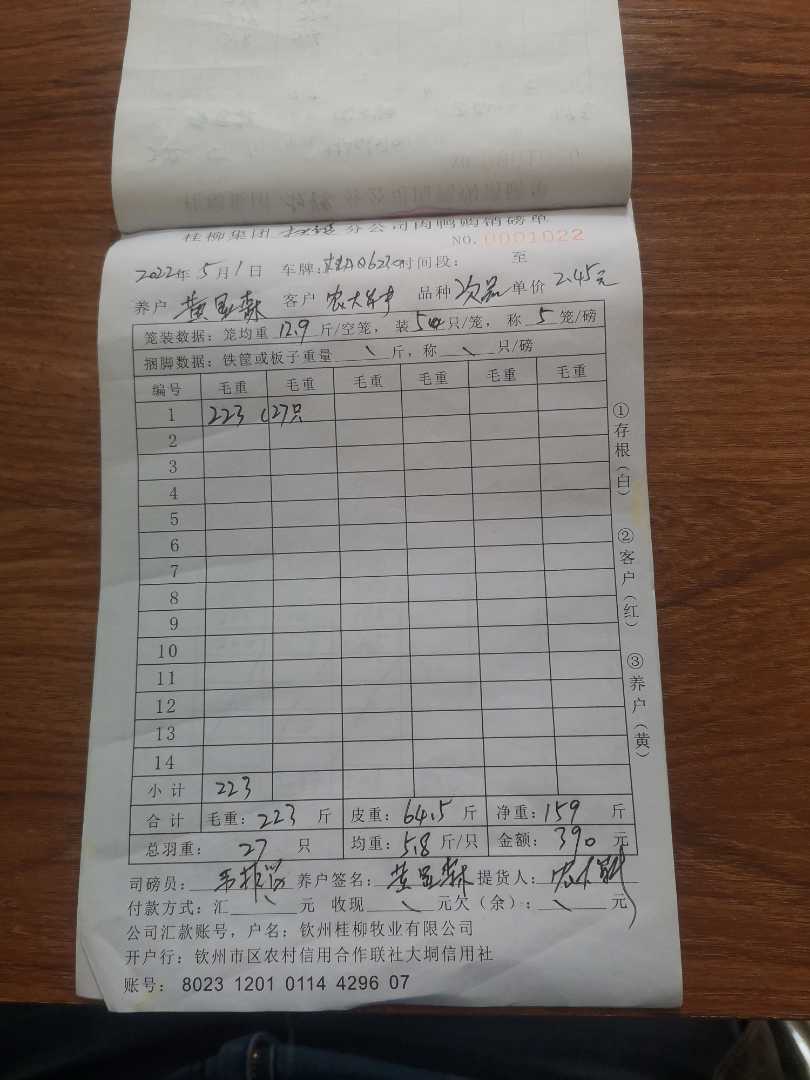 桂柳集团 分公司肉鸭购销磅单
NO. 0001022
2022年5月1日 车牌: 时间段: 至
养户 黄显森 客户 农大 品种 次品 单价 2.45元
笼装数据: 笼均重 12.9 斤/空笼, 装 只/笼, 称 5 笼/磅
捆脚数据: 铁筐或板子重量 \ 斤, 称 \ 只/磅
编号 毛重 毛重 毛重 毛重 毛重 毛重
1 223 (27只
2
3
4
5
6
7
8
9
10
11
12
13
14
小计 223
合计 毛重: 223 斤 皮重: 64.5 斤 净重: 159 斤
总羽重: 27 只 均重: 5.8 斤/只 金额: 390 元
司磅员: 养户签名: 黄显森 提货人: 农大
付款方式: 汇 \ 元 收现 \ 元欠(余): \ 元
公司汇款账号, 户名: 钦州桂柳牧业有限公司
开户行: 钦州市区农村信用合作联社大垌信用社
账号: 8023 1201 0114 4296 07
①存根(白)
②客户(红)
③养户(黄)